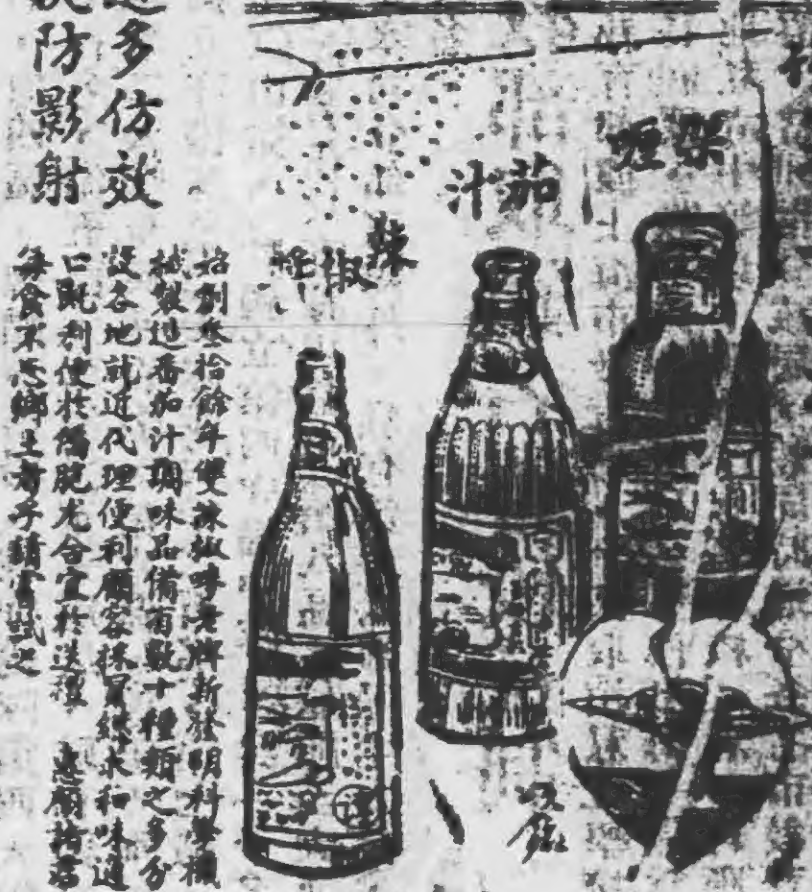 喱架
茄汁
辣椒
多仿效
防影射
始創叁拾餘年雙辣椒嘜老牌新發明科學機
械製造番茄汁調味品備有數十種類之多分
設各地就近代理便利顧客採買
口既利便於攜尤合宜於送禮 惠顧諸君
每食不忘鄉土者予請嘗試之